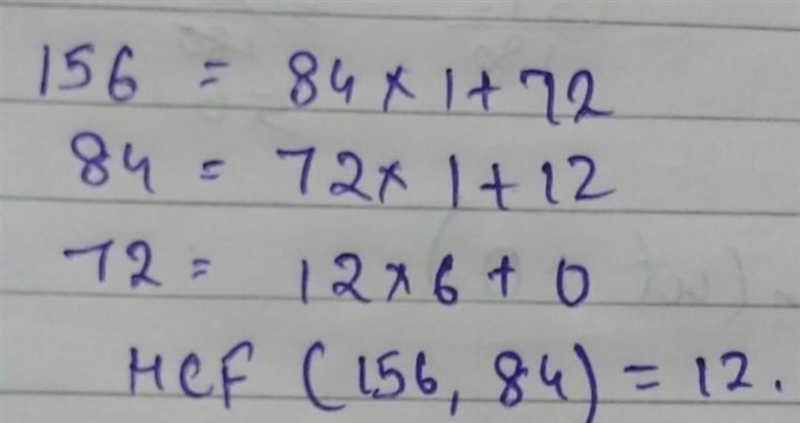 156 = 84 × 1 + 72
84 = 72 × 1 + 12
72 = 12 × 6 + 0
HCF (156, 84) = 12.